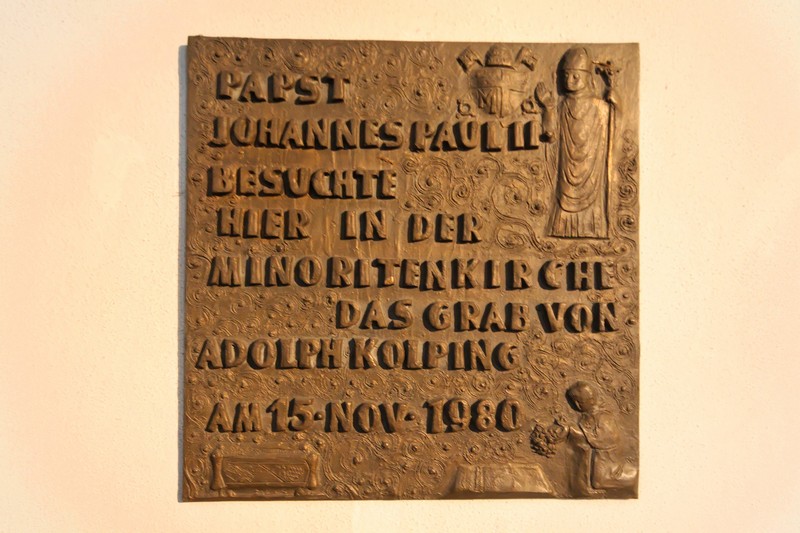 PAPST
JOHANNES PAUL II
BESUCHTE
HIER IN DER
MINORITENKIRCHE
DAS GRAB VON
ADOLPH KOLPING
AM 15·NOV·1980